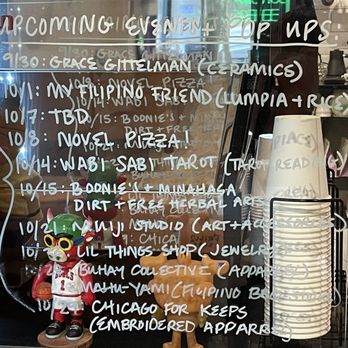 UPCOMING EVENEN+ POP UPS:
9/30: GRACE GITTELMAN (CERAMICS)
10/1: MY FILIPINO FRIEND (LUMPIA + RICE
10/7: TBD
10/8: NOVEL PIZZA!
10/14: WABI SABI TAROT (TAROT READING)
10/15: BOONIE'S + MINAHASA
DIRT + FREE HERBAL ARTS
10/21: STUDIO (ART + ACCESSORIES)
LIL THINGS SHOP (JEWELRY
BUHAY COLLECTIVE (APPAREL)
YAMI (FILIPINO
CHICAGO FOR KEEPS
(EMBROIDERED APPAREL)